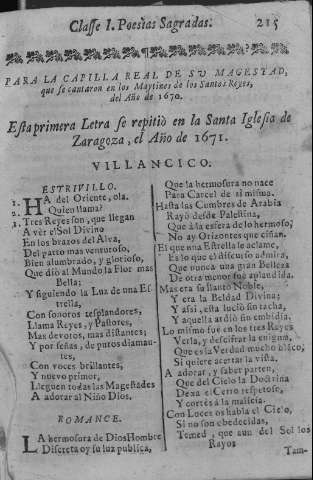 Classe I. Poesias Sagradas. 215
PARA LA CAPILLA REAL DE SU MAGESTAD,
que se cantaron en los Maytines de los Santos Reyes,
del Año de 1670.
Esta primera Letra se repitiò en la Santa Iglesia de
Zaragoza, el Año de 1671.
VILLANCICO.
ESTRIVILLO.
1. HA del Oriente, ola.
2. Quien llama?
1. Tres Reyes son, que llegan
A vèr el Sol Divino
En los brazos del Alva,
Del parto mas venturoso,
Bien alumbrado, y glorioso,
Que diò al Mundo la Flor mas
Bella;
Y siguiendo la Luz de una Es-
trella,
Con sonoros resplandores,
Llama Reyes, y Pastores,
Mas devotos, mas distantes;
Y por señas, de puros diaman-
tes,
Con voces brillantes,
Y nuevo primor,
Lleguen todas las Magestades
A adorar al Niño Dios.
ROMANCE.
LA hermosura de Dios Hombre
Discreta oy su luz publica,
Que la hermosura no nace
Para Carcel de si misma.
Hasta las Cumbres de Arabia
Rayò desde Palestina,
Que à la esfera de lo hermoso,
No ay Orizontes que ciñan.
El que una Estrella le aclame,
Es lo que el discurso admira,
Que nunca una gran Belleza
De otra menor fue aplaudida.
Mas era su llanto Noble,
Y era la Beldad Divina;
Y assi, esta luciò sin tacha,
Y aquella ardiò sin embidia,
Lo mismo fue en los tres Reyes
Verla, y descifrar la enigma,
Que es la Verdad mucho blāco,
Si quiere acertar la vista.
A adorar, y saber parten,
Que del Cielo la Doctrina
Dexa el Cerro respetoso,
Y cortés à la malicia.
Con Luces os habla el Cielo,
Si no son obedecidas,
Temed, que aun del Sol los
Rayos
Tam-